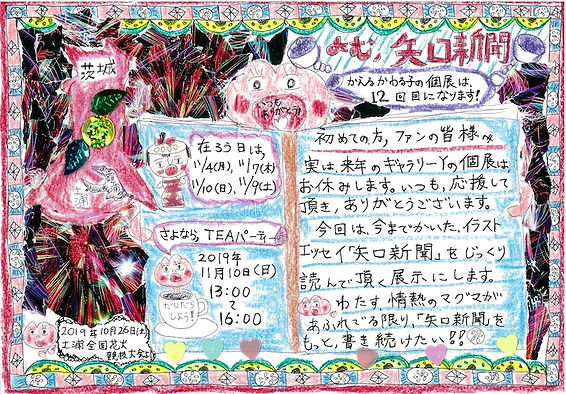 よむ、矢口新聞
かえるかわる子の個展は、
12回目になります!
茨城
土浦
いつも
ありがとう!
在ろう日は、
11/4(月)、11/7(木)
11/10(日)、11/9(土)
さよなら、TEAパーティー
2019年
11月10日(日)
13:00
〜
16:00
だらだら
しよう!
2019年10月26日(土)
土浦全国花火
競技大会より
初めての方,ファンの皆様へ
実は、来年のギャラリーYの個展は
お休みします。いつも,応援して
頂き、ありがとうございます。
今回は、今までかいた、イラスト
エッセイ「矢口新聞」をじっくり
読んで頂く展示にします。
わたす,情熱のマグマが
あふれでる限り,「矢口新聞」を
もっと,書き続けたい!!